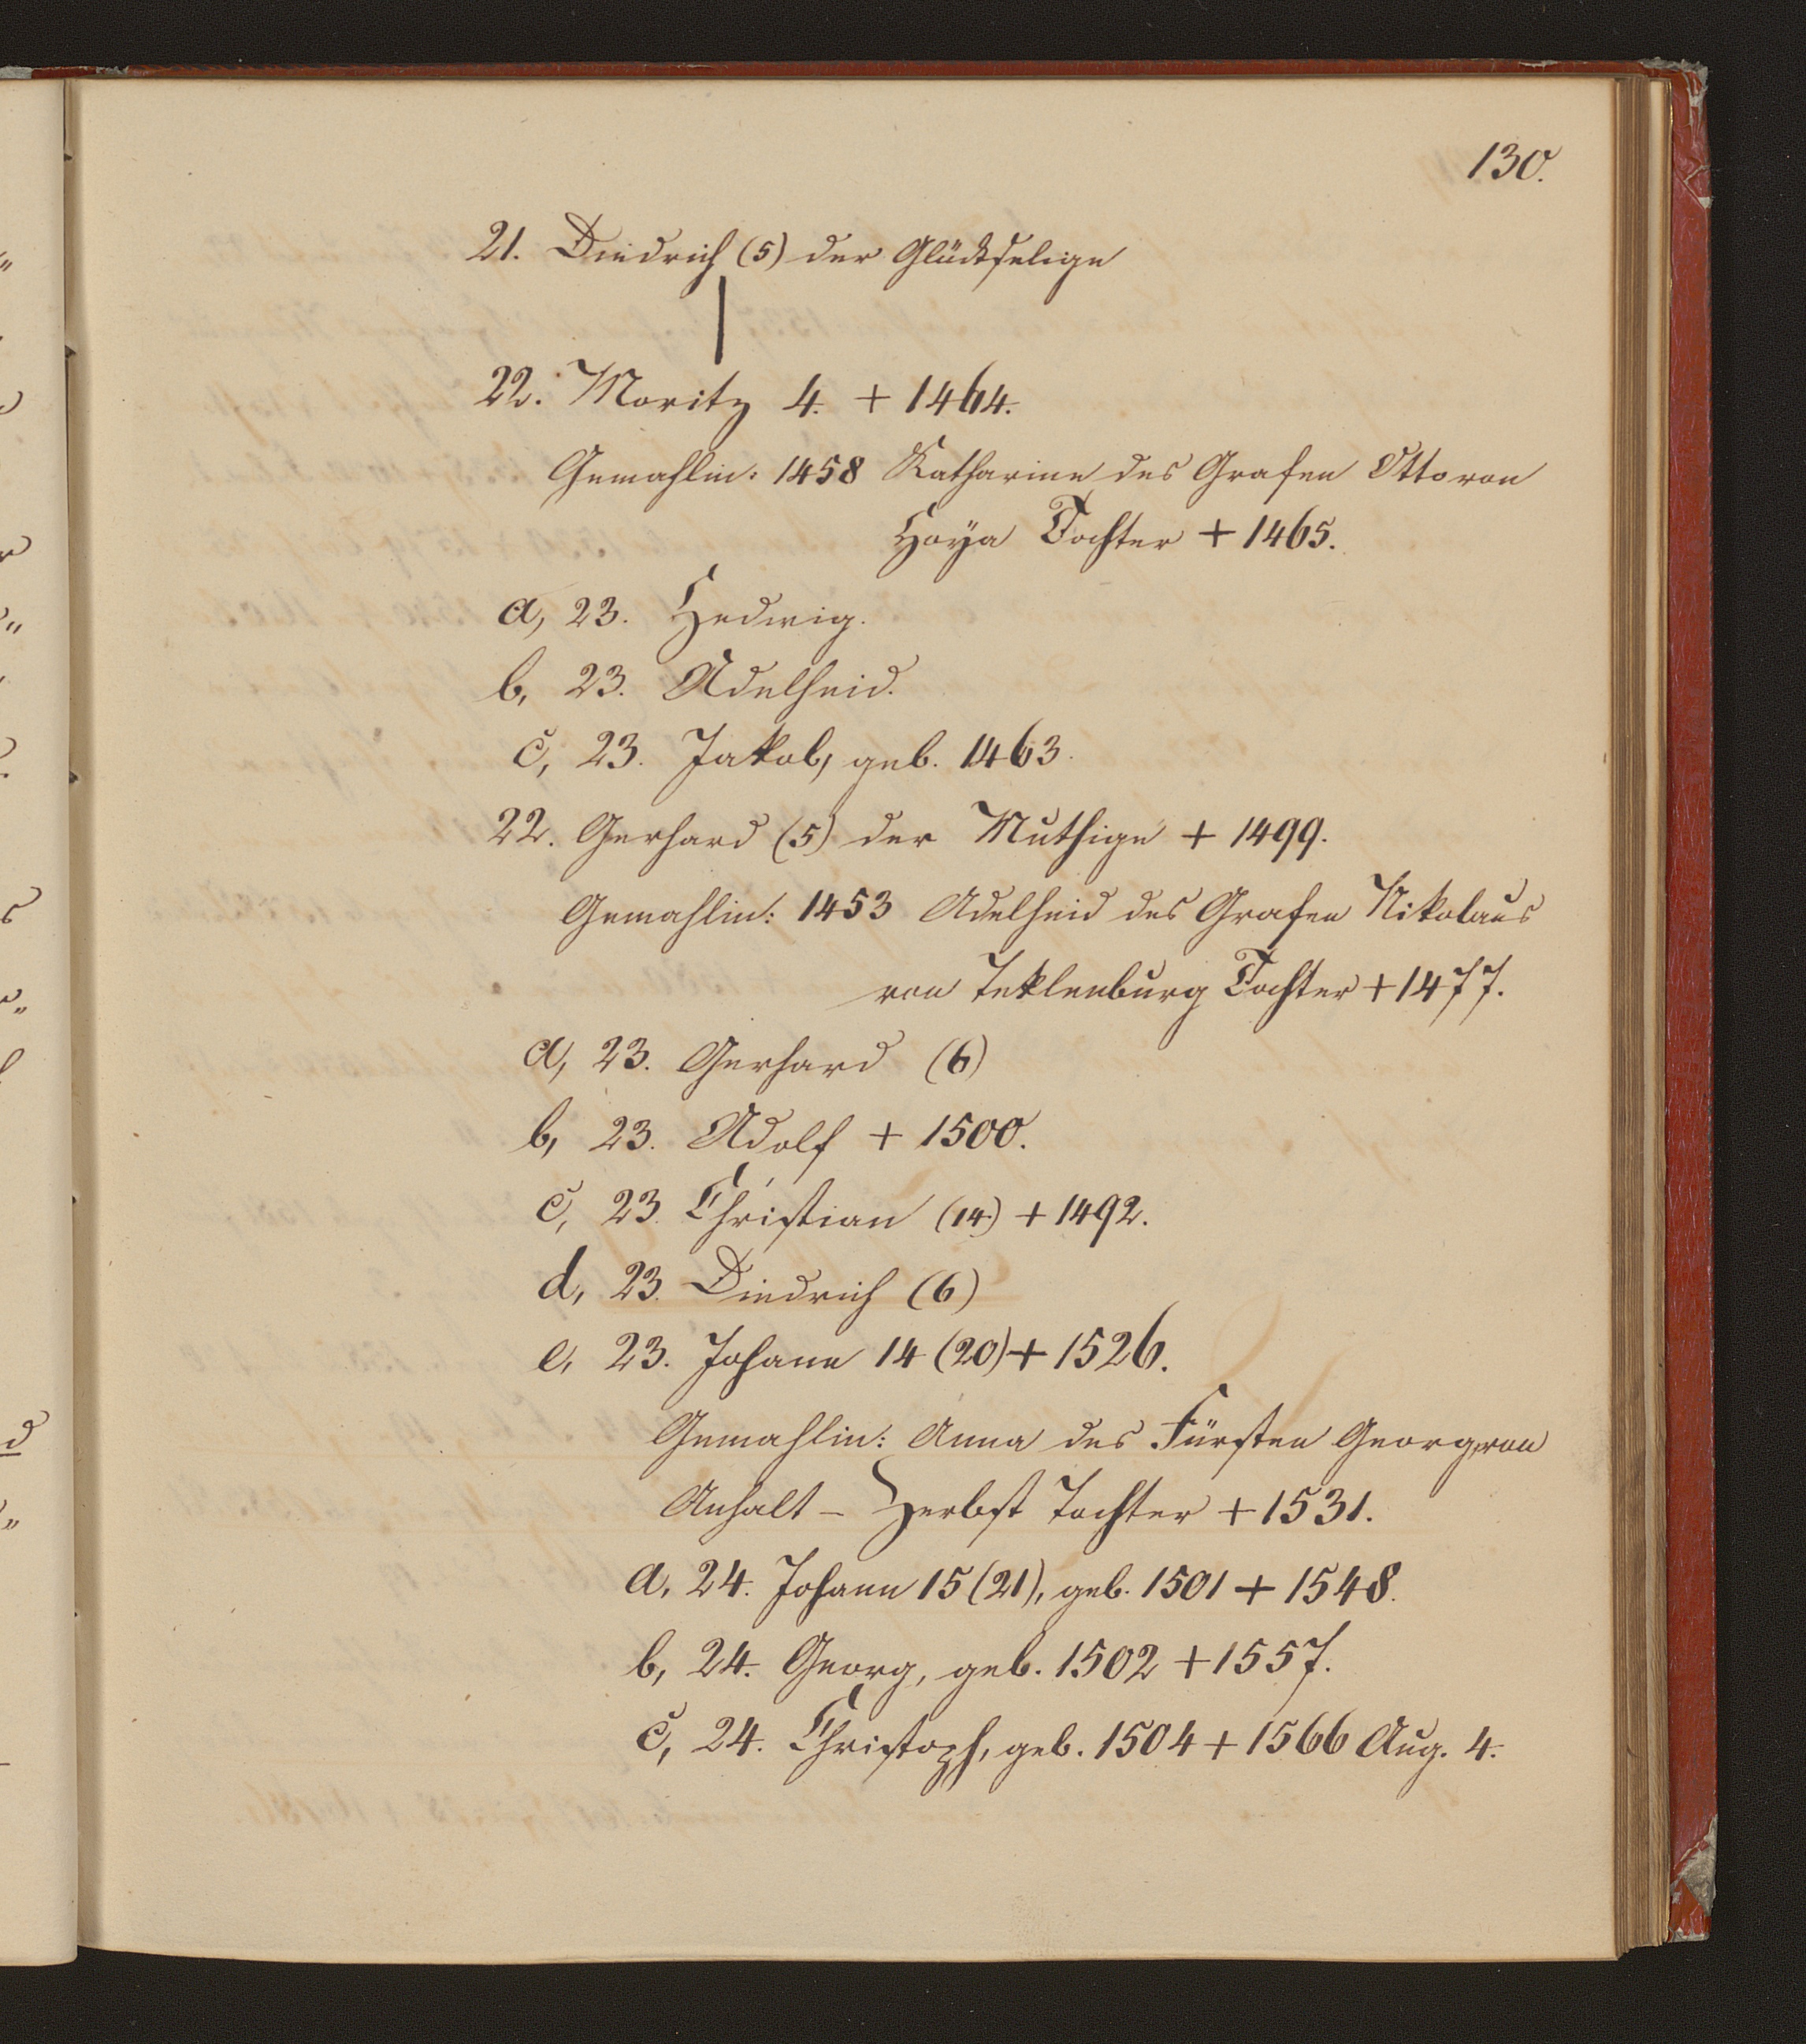 130.
21. Diedrich (5) der Glückselige
22. Moritz 4. + 1464.
Gemahlin: 1458 Katharine des Grafen Otto von
Hoya Tochter + 1465.
a, 23. Hedwig.
b, 23. Adelheid.
c, 23. Jakob, geb. 1463.
22. Gerhard (5) der Muthige + 1499.
Gemahlin: 1453 Adelheid des Grafen Nikolaus
von Teklenburg Tochter + 1477.
a, 23. Gerhard (6)
b, 23. Adolf + 1500.
c, 23. Christian (14) + 1492.
d, 23. Diedrich (6)
e, 23. Johann 14 (20) + 1526.
Gemahlin: Anna des Fürsten Georg von
Anhalt - Zerbst Tochter + 1531.
a, 24. Johann 15 (21), geb. 1501 + 1548.
b, 24. Georg, geb. 1502 + 1557.
c, 24. Christoph, geb. 1504 + 1566 Aug. 4.